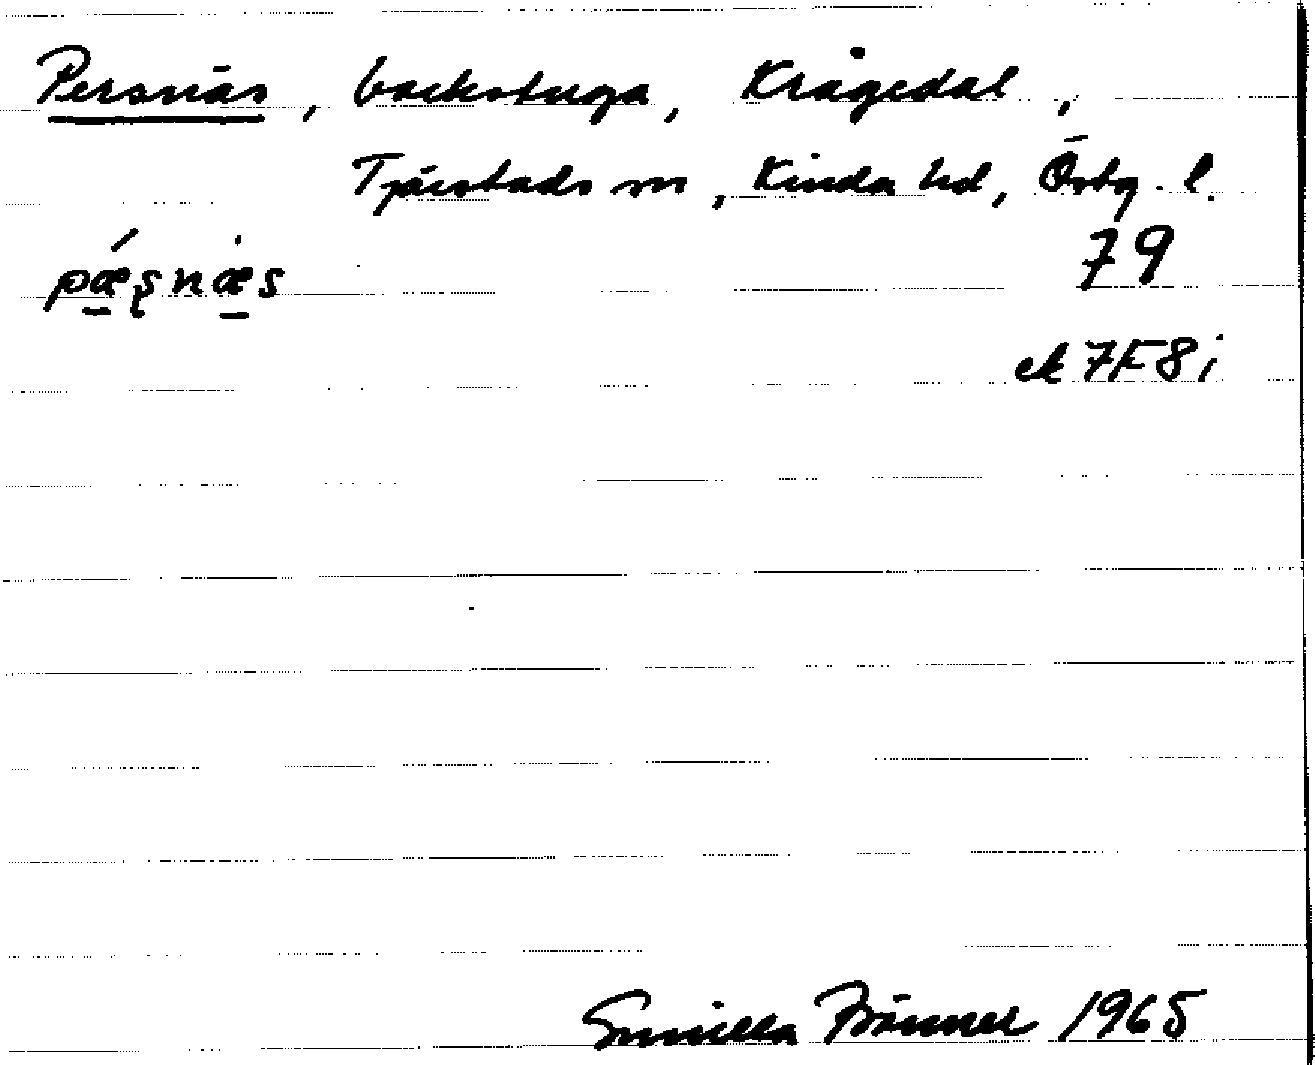 Persnäs, backstuga, Krågedal,
Tjärstads sn, Kinda hd, Östg. l.
pǽʂnæs 79
ek 7F8i
Gunilla Brönner 1965